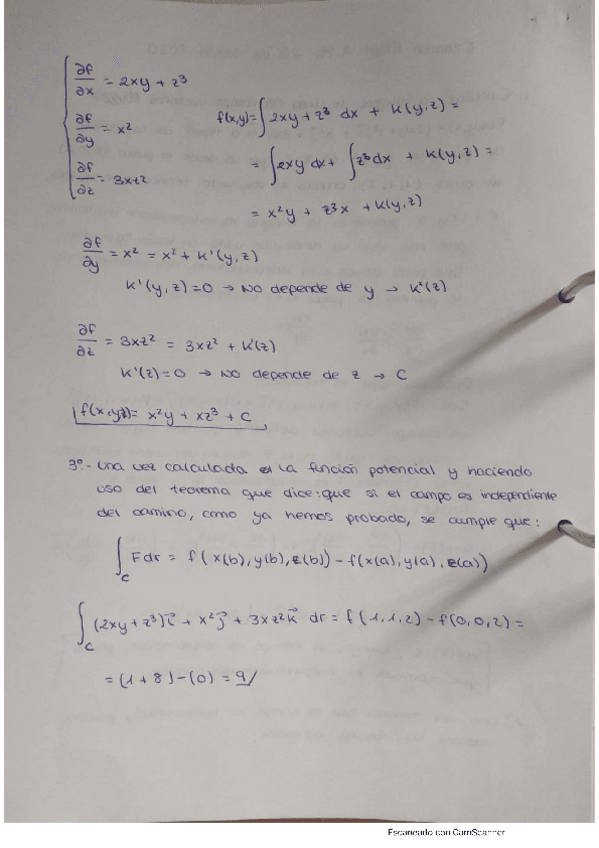 ∂f/∂x = 2xy + z³
∂f/∂y = x²
∂f/∂z = 3xz²
f(x,y)= ∫ 2xy + z³ dx + K(y,z) =
= ∫ 2xy dx + ∫ z³ dx + K(y,z) =
= x²y + z³x + K(y,z)
∂f/∂y = x² = x² + K'(y,z)
K'(y,z)=0 → No depende de y → K(z)
∂f/∂z = 3xz² = 3xz² + K'(z)
K'(z)=0 → No depende de z → C
f(x,y,z)= x²y + xz³ + C
3º.- Una vez calculada la función potencial y haciendo
uso del teorema que dice: que si el campo es independiente
del camino, como ya hemos probado, se cumple que:
∫_C Fdr = f(x(b), y(b), z(b)) - f(x(a), y(a), z(a))
∫_C (2xy + z³)i⃗ + x²j⃗ + 3xz²k⃗ dr = f(1,1,2) - f(0,0,2) =
= (1 + 8) - (0) = 9/
Escaneado con CamScanner